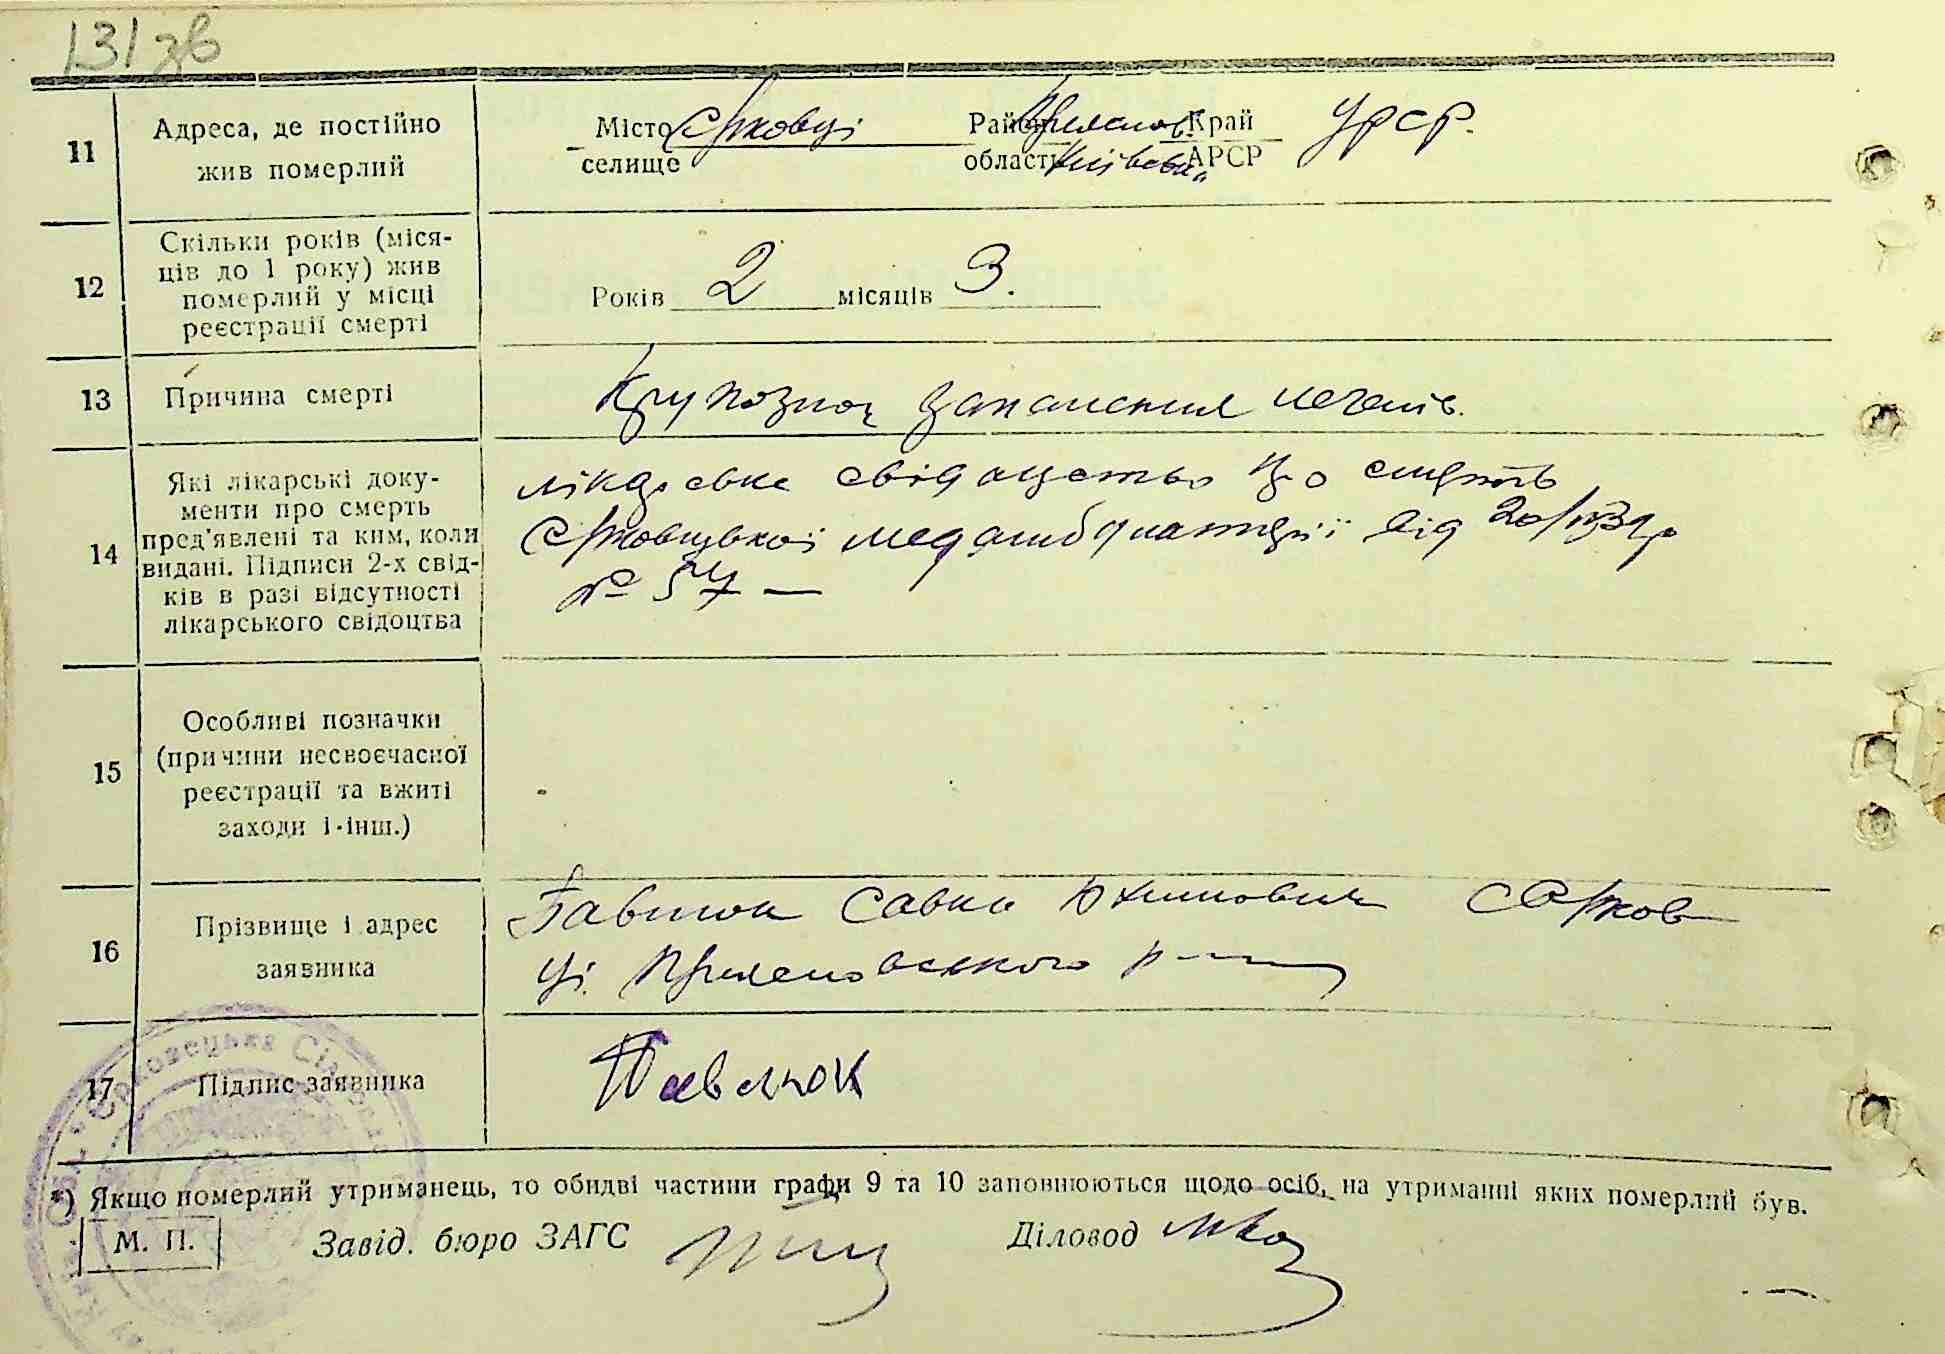 131 зв
11 Адреса, де постійно жив померлий
Місто селище Єрковці Район Переяслов. Край УРСР.
області Київська АРСР
12 Скільки років (міся-
ців до 1 року) жив
померлий у місці
реєстрації смерті
Років 2 місяців 3.
13 Причина смерті
Крупозное запаления легенів.
14 Які лікарські доку-
менти про смерть
пред'явлені та ким, коли
видані. Підписи 2-х свід-
ків в разі відсутності
лікарського свідоцтва
лікарське свідоцство про смерть
Єрковцької медамбулаторії від
№ 57 —
15 Особливі позначки
(причини несвоєчасної
реєстрації та вжиті
заходи і інш.)
16 Прізвище і адрес
заявника
Павлюк Савка Юхимович с Єрков
ці. Переясловського р-ну
17 Підпис заявника
Павлюк
*) Якщо померлий утриманець, то обидві частини графи 9 та 10 заповнюються щодо осіб, на утриманні яких померлий був.
М. П. Завід. бюро ЗАГС Діловод